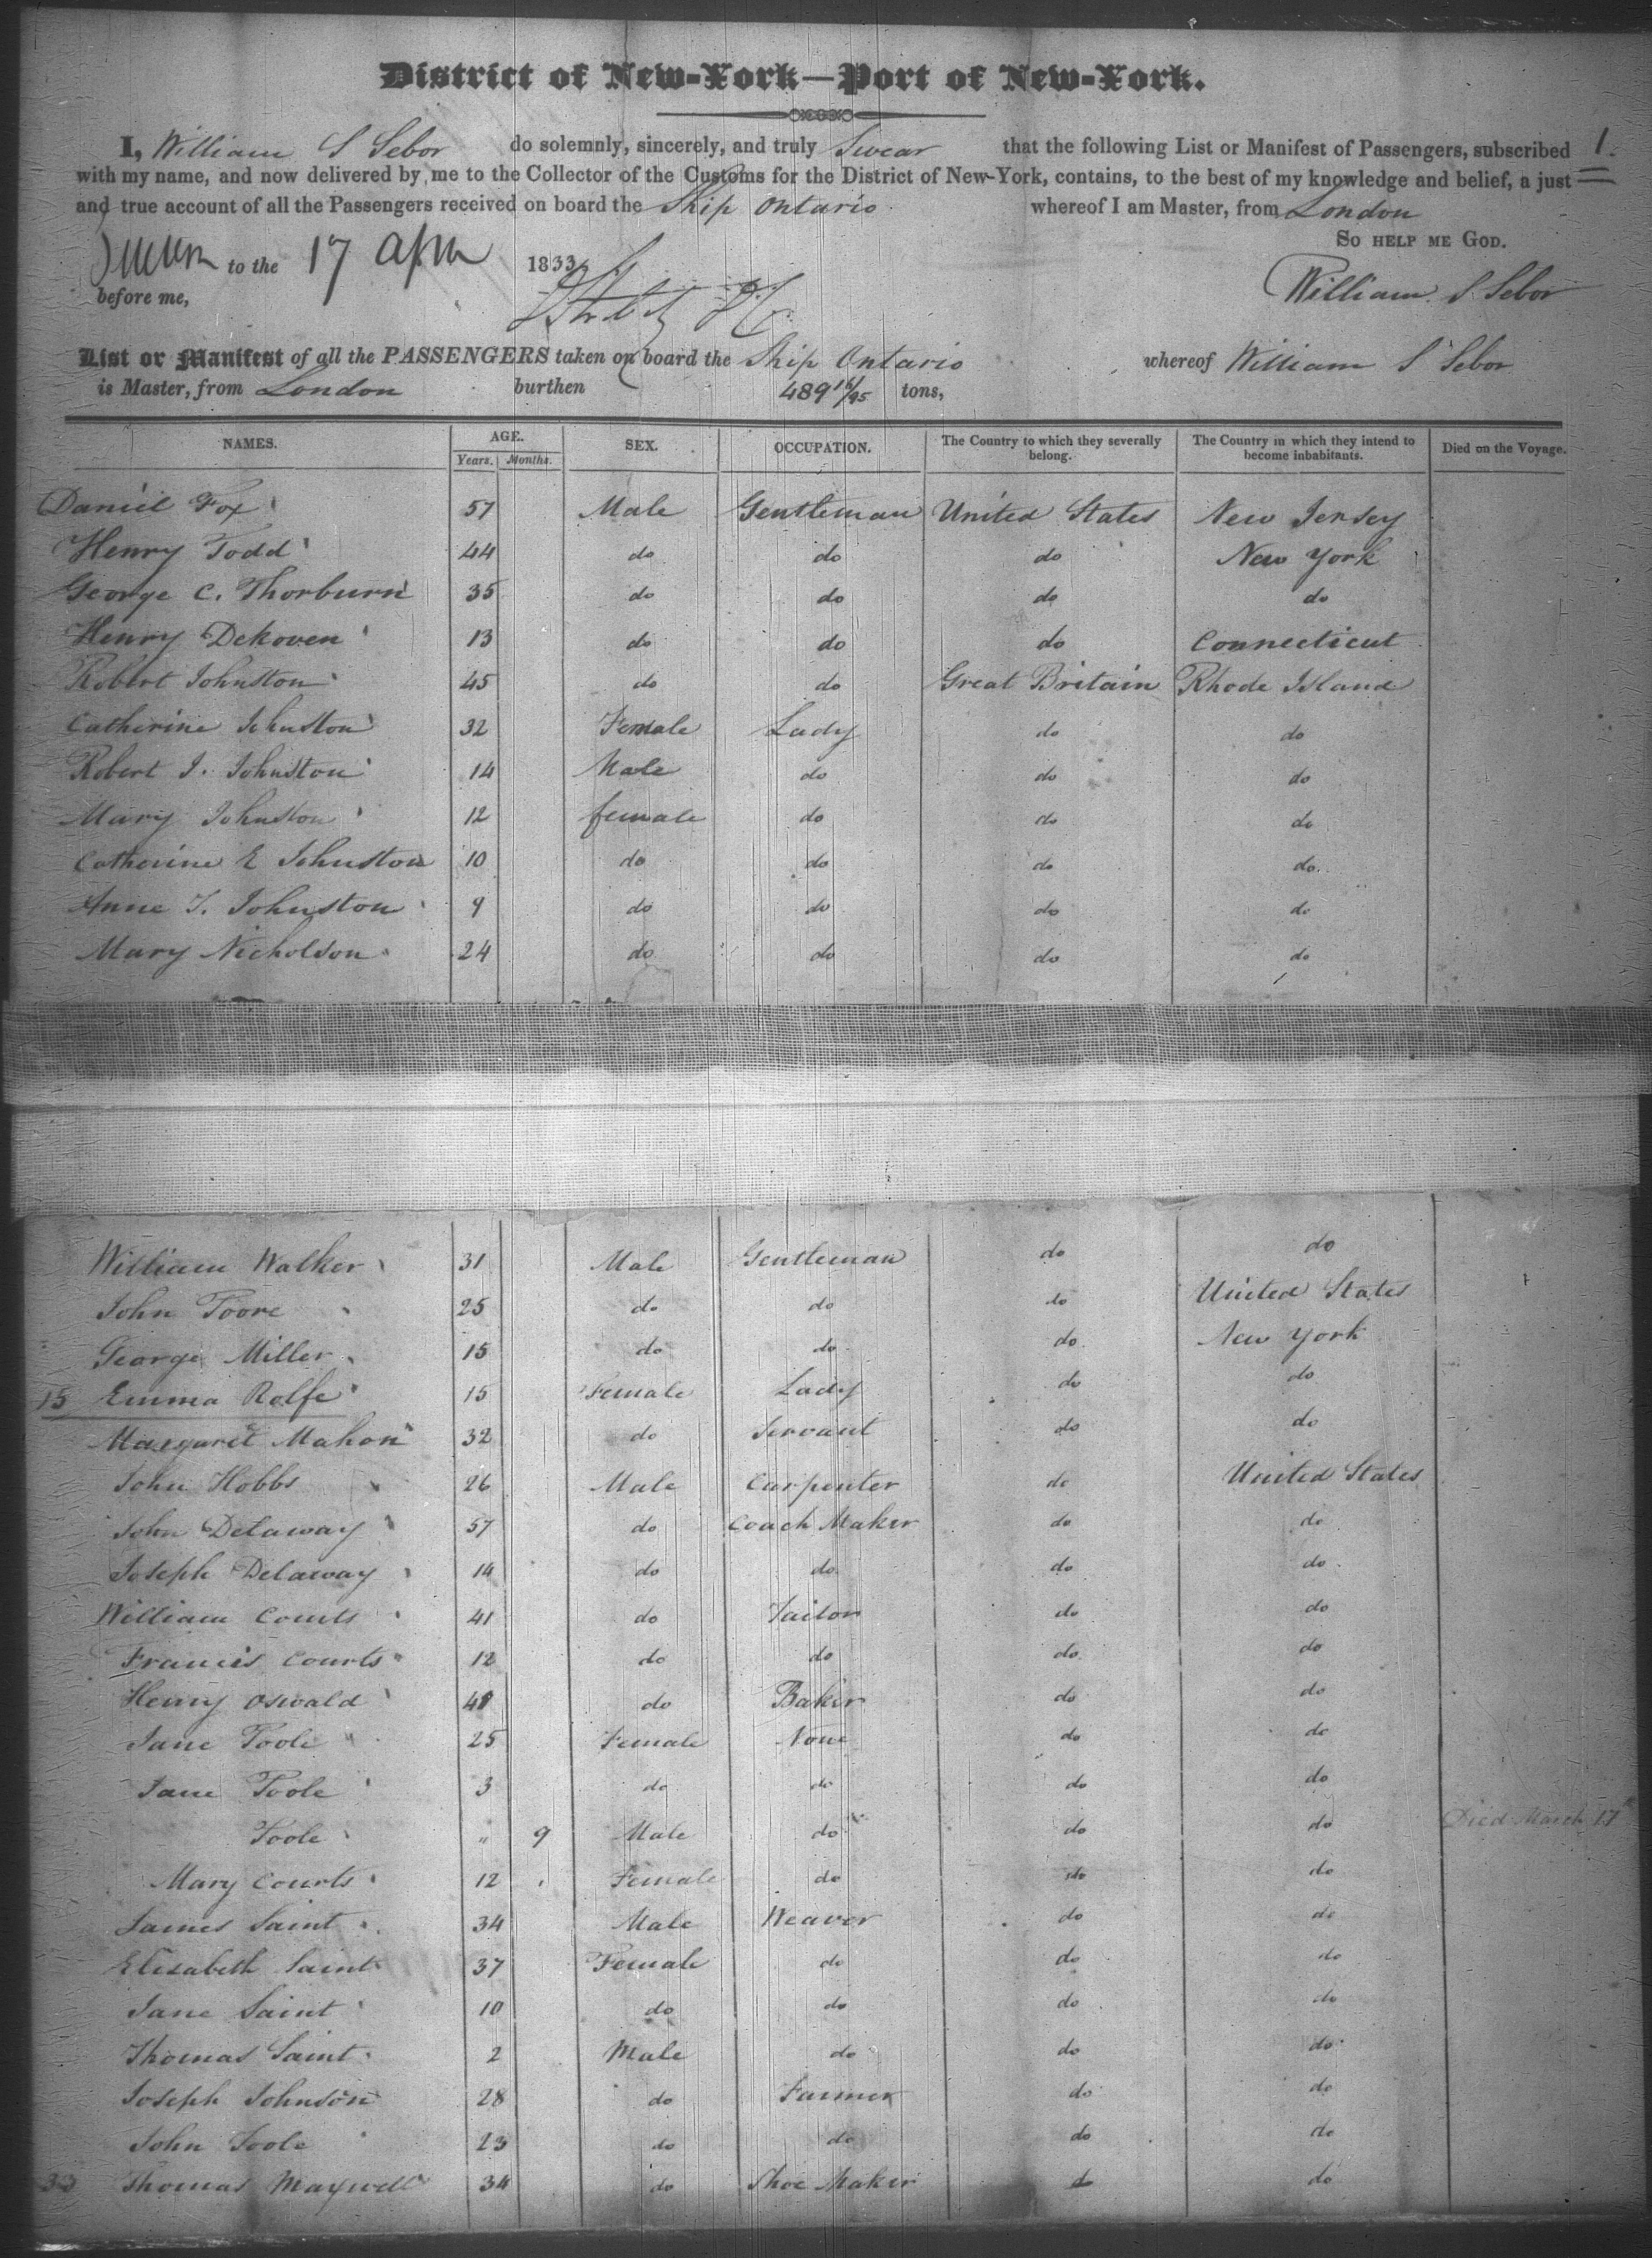 District of New-York—Port of New-York.
1.
I, William S Sebor do solemnly, sincerely, and truly Swear that the following List or Manifest of Passengers, subscribed
with my name, and now delivered by me to the Collector of the Customs for the District of New-York, contains, to the best of my knowledge and belief, a just
and true account of all the Passengers received on board the Ship Ontario whereof I am Master, from London
So help me God.
to the 17 1833
before me,
William S Sebor
List or Manifest of all the PASSENGERS taken on board the Ship Ontario whereof William S Sebor
is Master, from London burthen 489 16/95 tons,
NAMES. AGE. Years. Months. SEX. OCCUPATION. The Country to which they severally belong. The Country in which they intend to become inhabitants. Died on the Voyage.
Daniel Fox 57 Male Gentleman United States New Jersey
Henry Todd 44 do do do New York
George C. Thorburn 35 do do do do
Henry Dekoven 13 do do do Connecticut
Robert Johnston 45 do do Great Britain Rhode Island
Catherine Johnston 32 Female Lady do do
Robert J. Johnston 14 Male do do do
Mary Johnston 12 female do do do
Catherine E Johnston 10 do do do do
Anne T. Johnston 9 do do do do
Mary Nicholson 24 do do do do
William Walker 31 Male Gentleman do do
John Toore 25 do do do United States
George Miller 15 do do do New York
15 Emma Rolfe 15 Female Lady do do
Margaret Mahon 32 do Servant do do
John Hobbs 26 Male Carpenter do United States
John Delaway 57 do Coach Maker do do
Joseph Delaway 14 do do do do
William Courts 41 do Tailor do do
Francis Courts 12 do do do do
Henry Oswald 48 do Baker do do
Jane Toole 25 Female None do do
Jane Toole 3 do do do do
Toole " 9 Male do do do Died March 17
Mary Courts 12 Female do do do
James Saint 34 Male Weaver do do
Elisabeth Saint 37 Female do do do
Jane Saint 10 do do do do
Thomas Saint 2 Male do do do
Joseph Johnson 28 do Farmer do do
John Toole 23 do do do do
Thomas Maxwell 34 do Shoe Maker do do